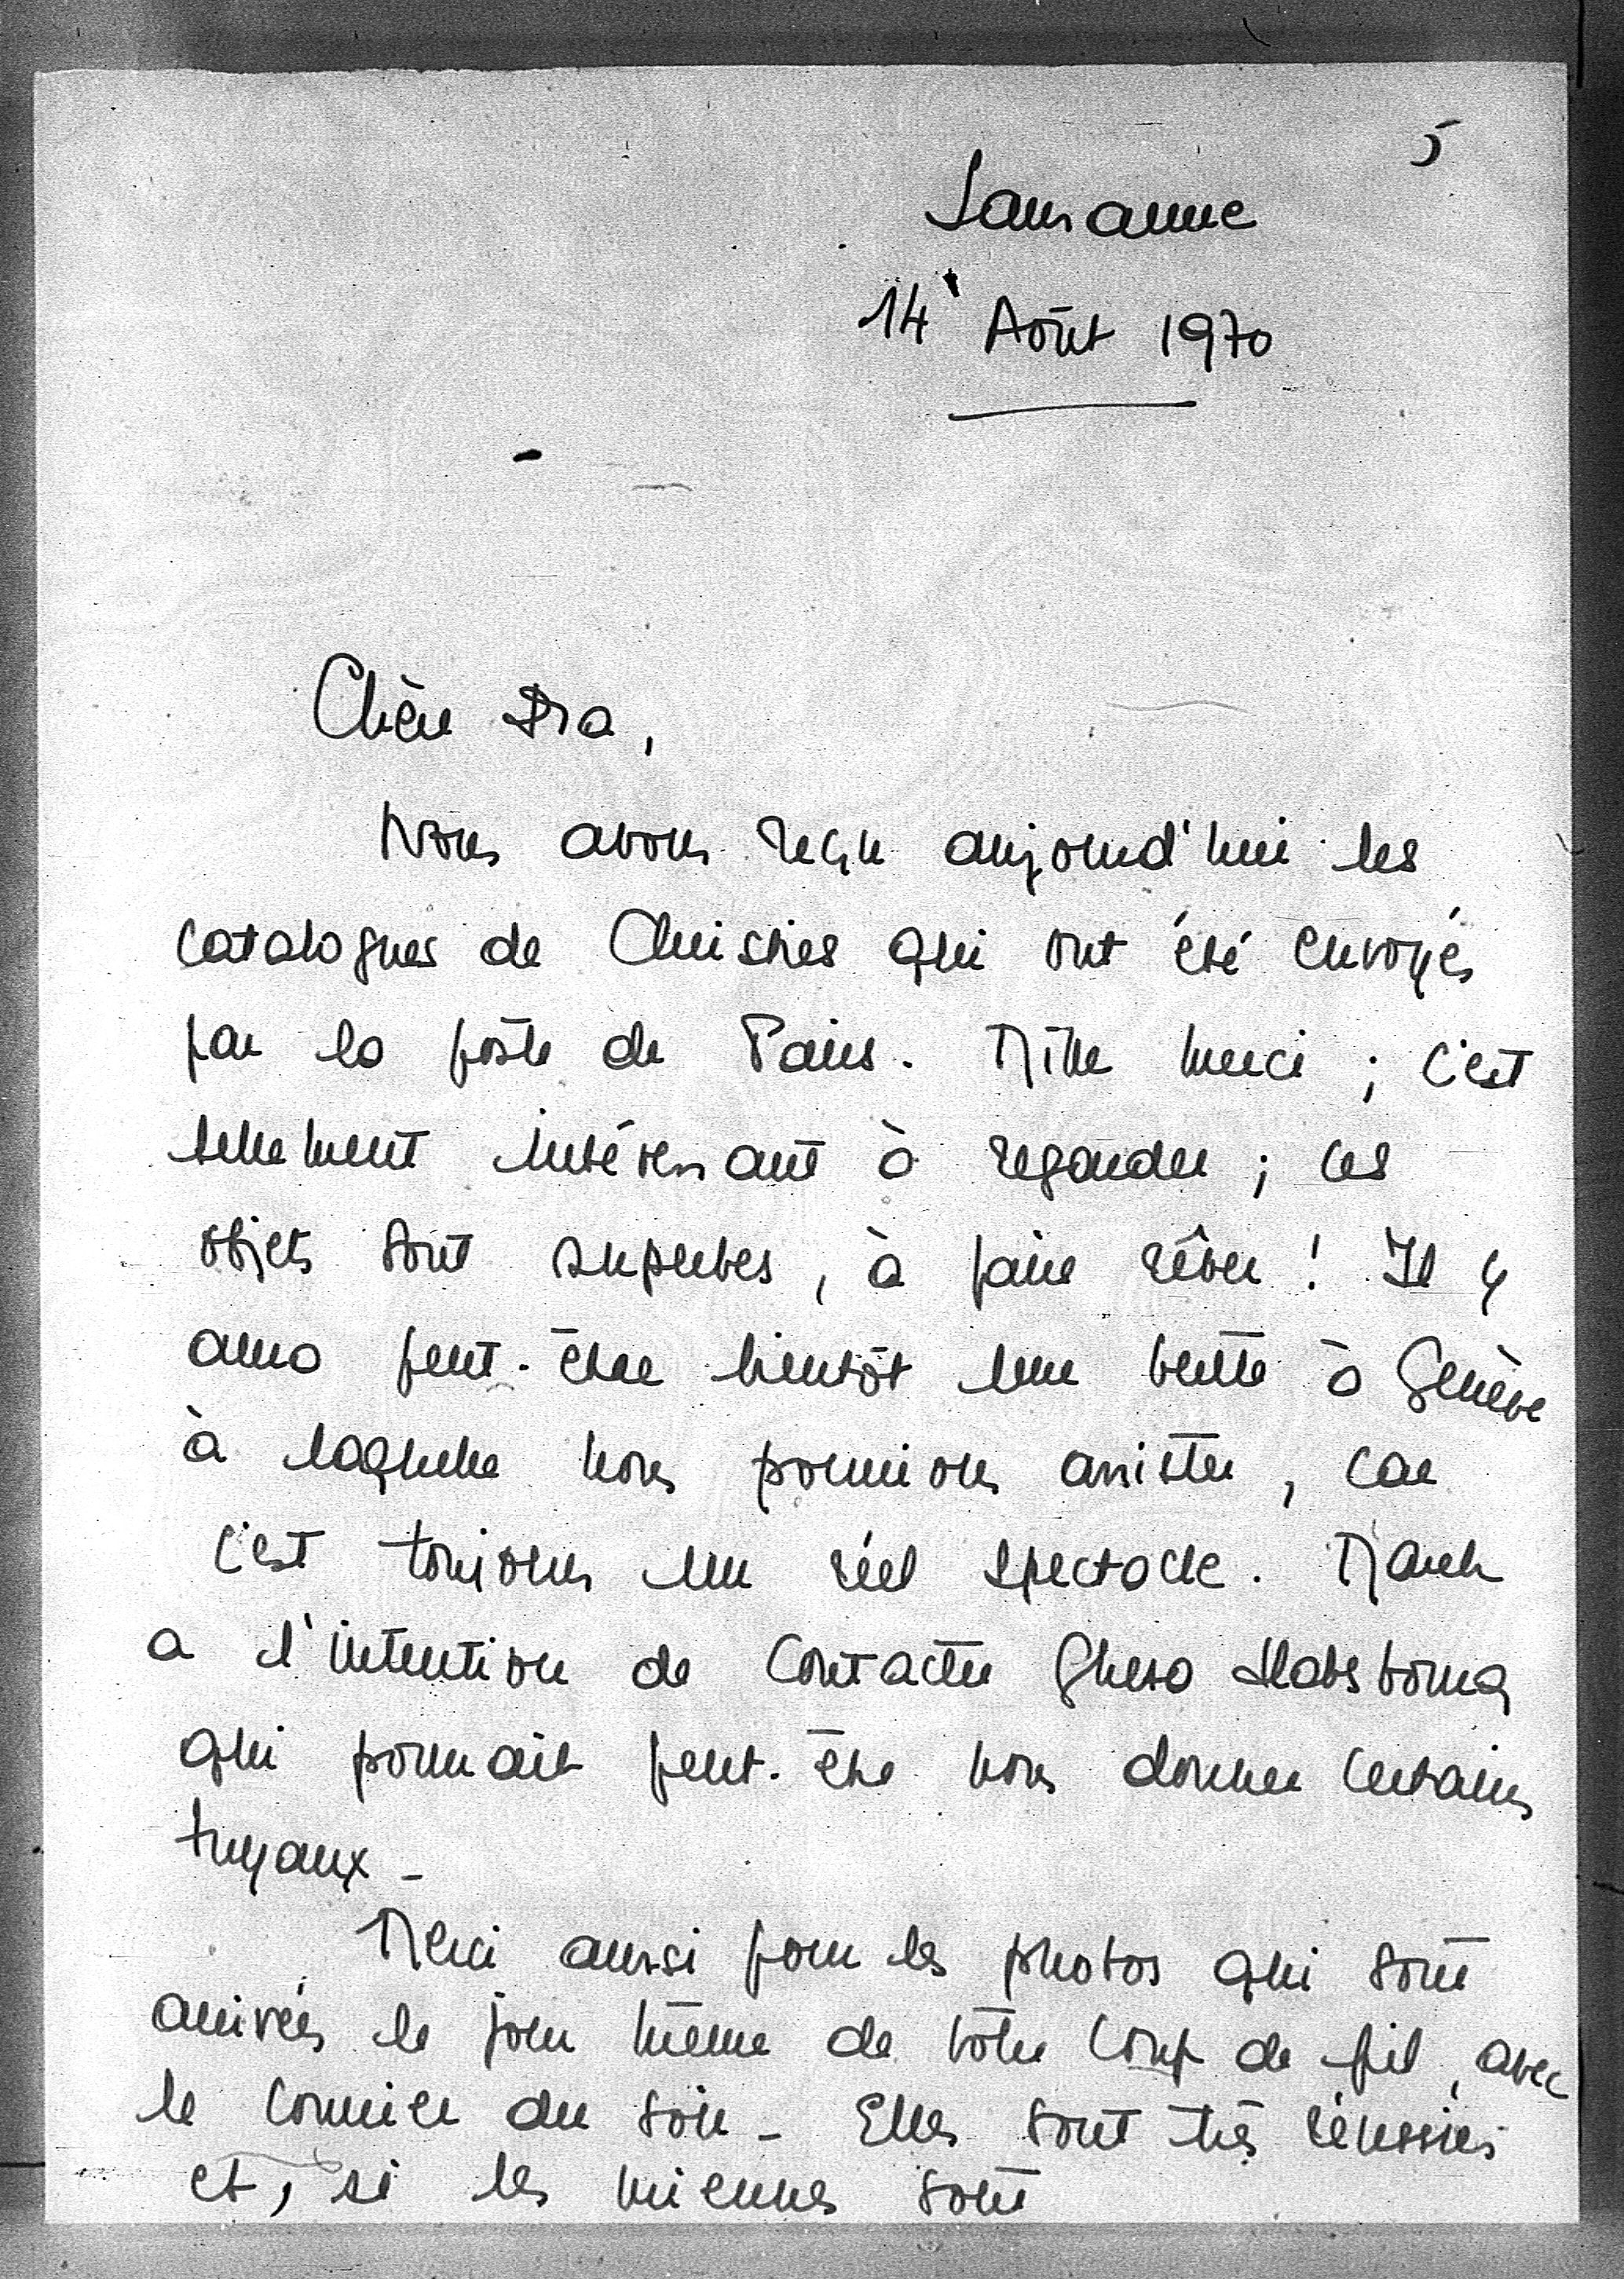 5
Lausanne
14 Août 1970
Chère Isa,
Nous avons reçu aujourd'hui les
catalogues de Christies qui ont été envoyés
par la poste de Paris. Mille merci ; c'est
tellement intéressant à regarder ; ces
objets sont superbes, à faire rêver ! Il y
aura peut-être bientôt une vente à Genève
à laquelle nous pourrions assister, car
c'est toujours un réel spectacle. Marek
a l'intention de contacter Gheza Habsbourg
qui pourrait peut-être nous donner certains
tuyaux -
Merci aussi pour les photos qui sont
arrivées le jour même de votre coup de fil, avec
le courrier du soir - Elles sont très réussies
et, si les miennes sont